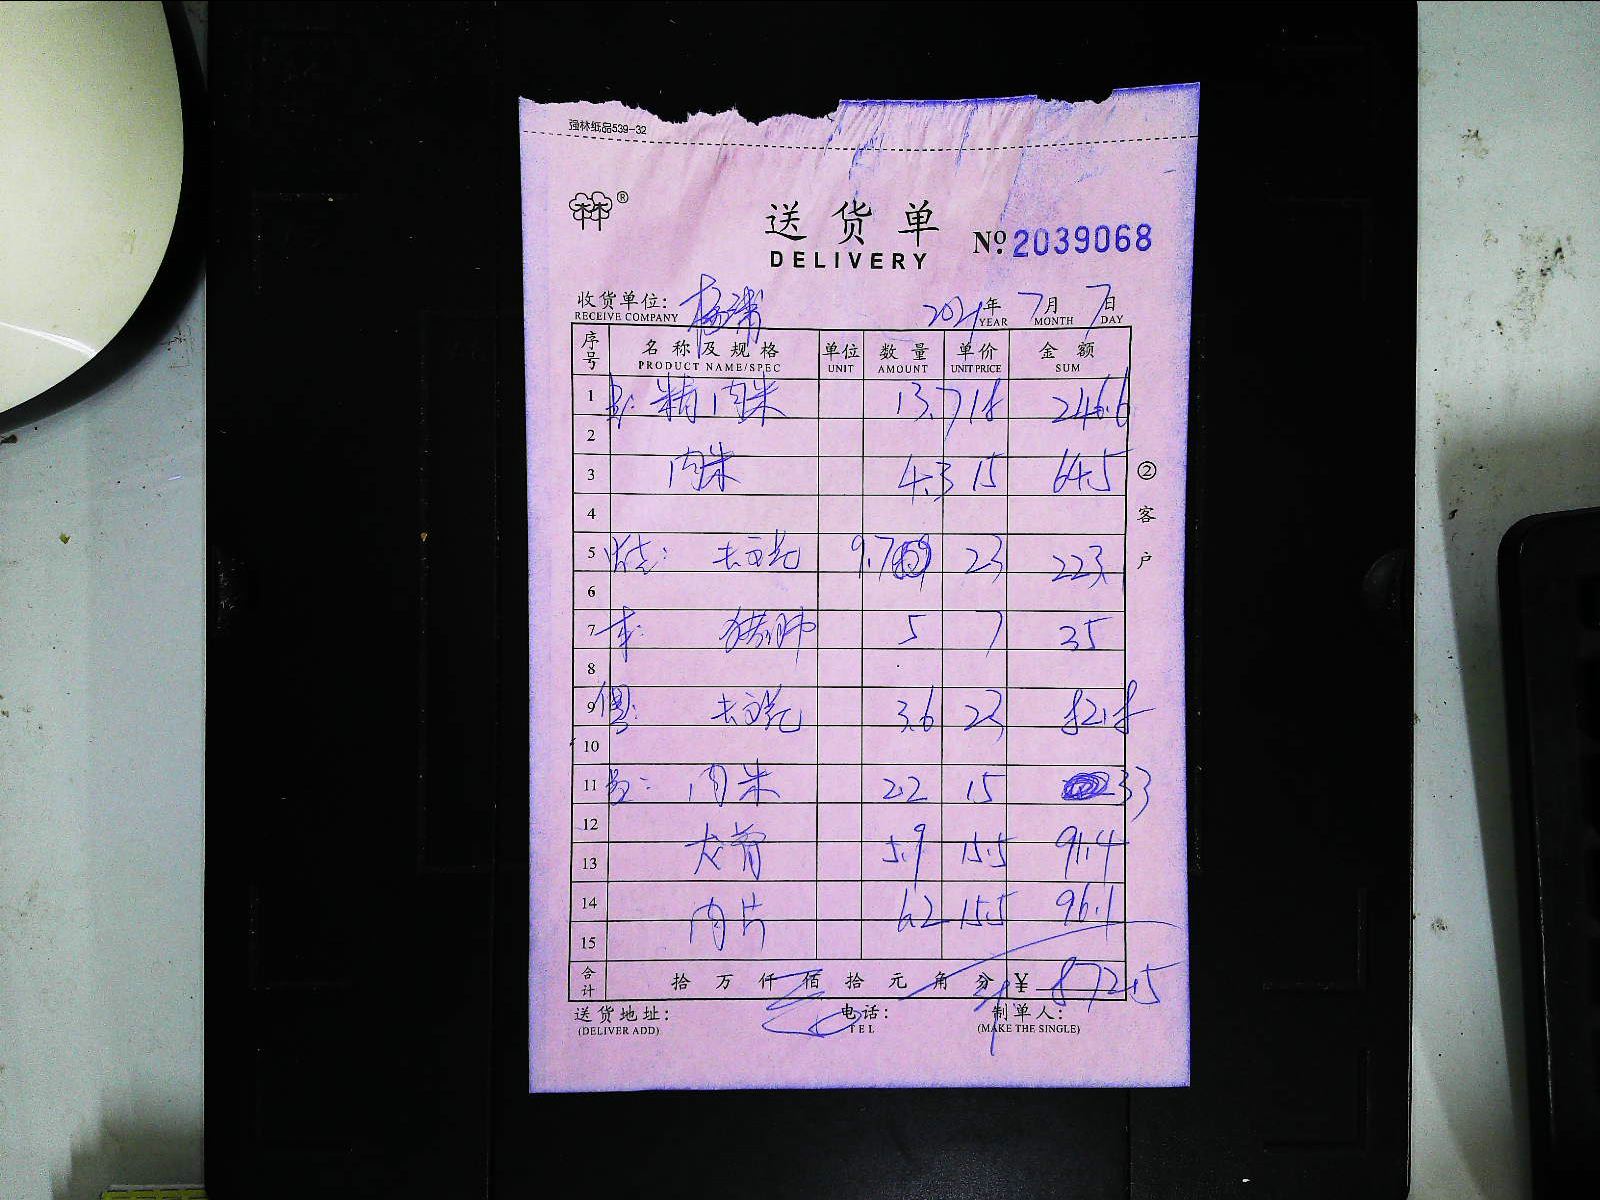 强林纸品539-32
林林®
送货单
DELIVERY
№ 2039068
收货单位: 2021年 7月 7日
RECEIVE COMPANY YEAR MONTH DAY
序号 名称及规格 单位 数量 单价 金额
PRODUCT NAME/SPEC UNIT AMOUNT UNIT PRICE SUM
1 精肉米 13.7 18 246.6
2
3 肉米 4.3 15 64.5
4
5 去皮 9.7 23 223
6
7 猪肺 5 7 35
8
9 去皮 3.6 23 82.8
10
11 肉米 2.2 15 33
12
13 龙骨 5.9 15.5 91.4
14 肉片 6.2 15.5 96.1
15
合计 拾 万 仟 佰 拾 元 角 分 ¥ 872.5
送货地址: 电话: 制单人:
(DELIVER ADD) TEL (MAKE THE SINGLE)
②客户